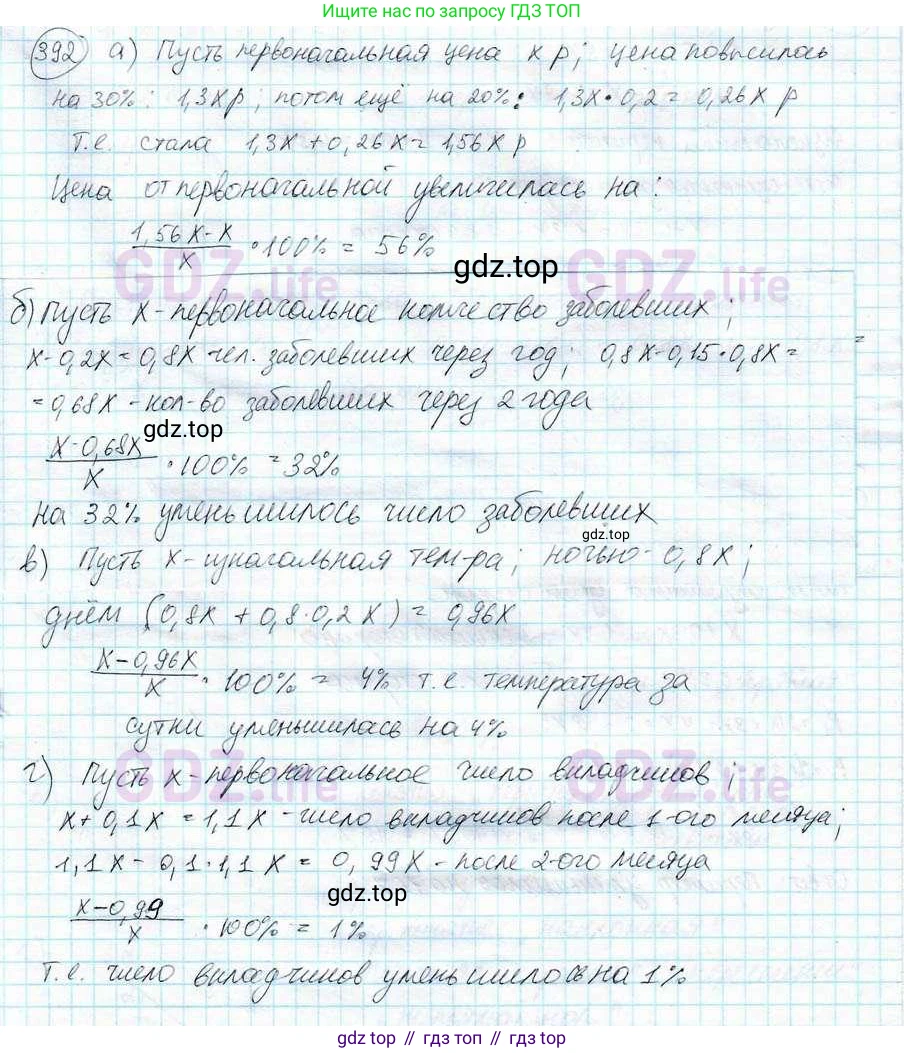 Ищите нас по запросу ГДЗ ТОП
392 а) Пусть первоначальная цена x р; цена повысилась
на 30%: 1,3x р; потом ещё на 20%: 1,3x·0,2=0,26x р
Т.е. стала 1,3x+0,26x=1,56x р
Цена от первоначальной увеличилась на:
(1,56x-x)/x · 100% = 56%
gdz.top
GDZ.life GDZ.life
б) Пусть x-первоначальное количество заболевших;
x-0,2x=0,8x чел. заболевших через год; 0,8x-0,15·0,8x= =
=0,68x-кол-во заболевших через 2 года
gdz.top
(x-0,68x)/x · 100% = 32%
На 32% уменьшилось число заболевших
gdz.top
в) Пусть x-изначальная тем-ра; ночью-0,8x;
днём (0,8x+0,8·0,2x)=0,96x
(x-0,96x)/x · 100% = 4% т.е. температура за
сутки уменьшилась на 4%
GDZ.life GDZ.life
г) Пусть x-первоначальное число вкладчиков;
x+0,1x=1,1x-число вкладчиков после 1-ого месяца;
1,1x-0,1·1,1x=0,99x-после 2-ого месяца
gdz.top
(x-0,99)/x · 100% = 1%
т.е. число вкладчиков уменьшилось на 1%
gdz.top // гдз топ // gdz top // гдз.top